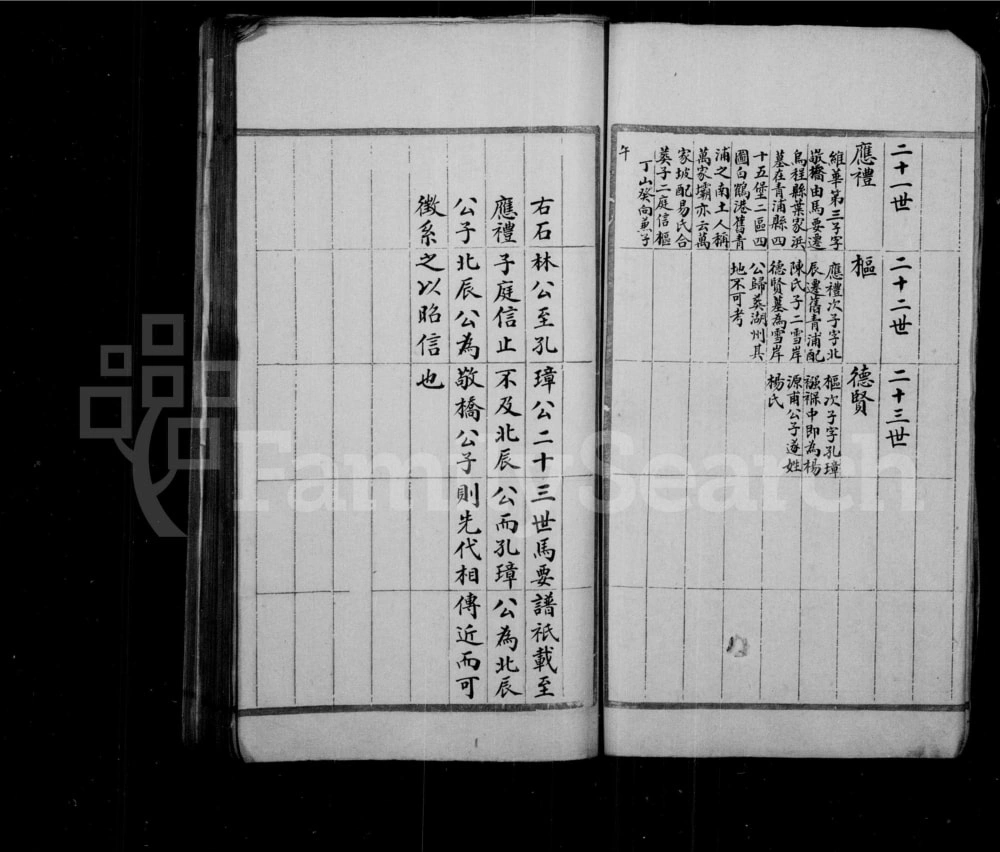 二十一世
應禮
維華第三子字
敬橋由馬要遷
烏程縣葉家浜
墓在青浦縣四
十五堡二區四
圖白鶴港舊青
浦之南土人稱
萬家壩亦云萬
家坡配易氏合
葬子二庭信樞
丁山癸向兼子
午
二十二世
樞
應禮次子字北
辰遷舊青浦配
陳氏子二雪岸
德賢墓為雪岸
公歸葬湖州其
地不可考
二十三世
德賢
樞次子字孔璋
襁褓中即為楊
源甫公子遂姓
楊氏
右石林公至孔璋公二十三世馬要譜祇載至
應禮子庭信止不及北辰公而孔璋公為北辰
公子北辰公為敬橋公子則先代相傳近而可
徵系之以昭信也
FamilySearch